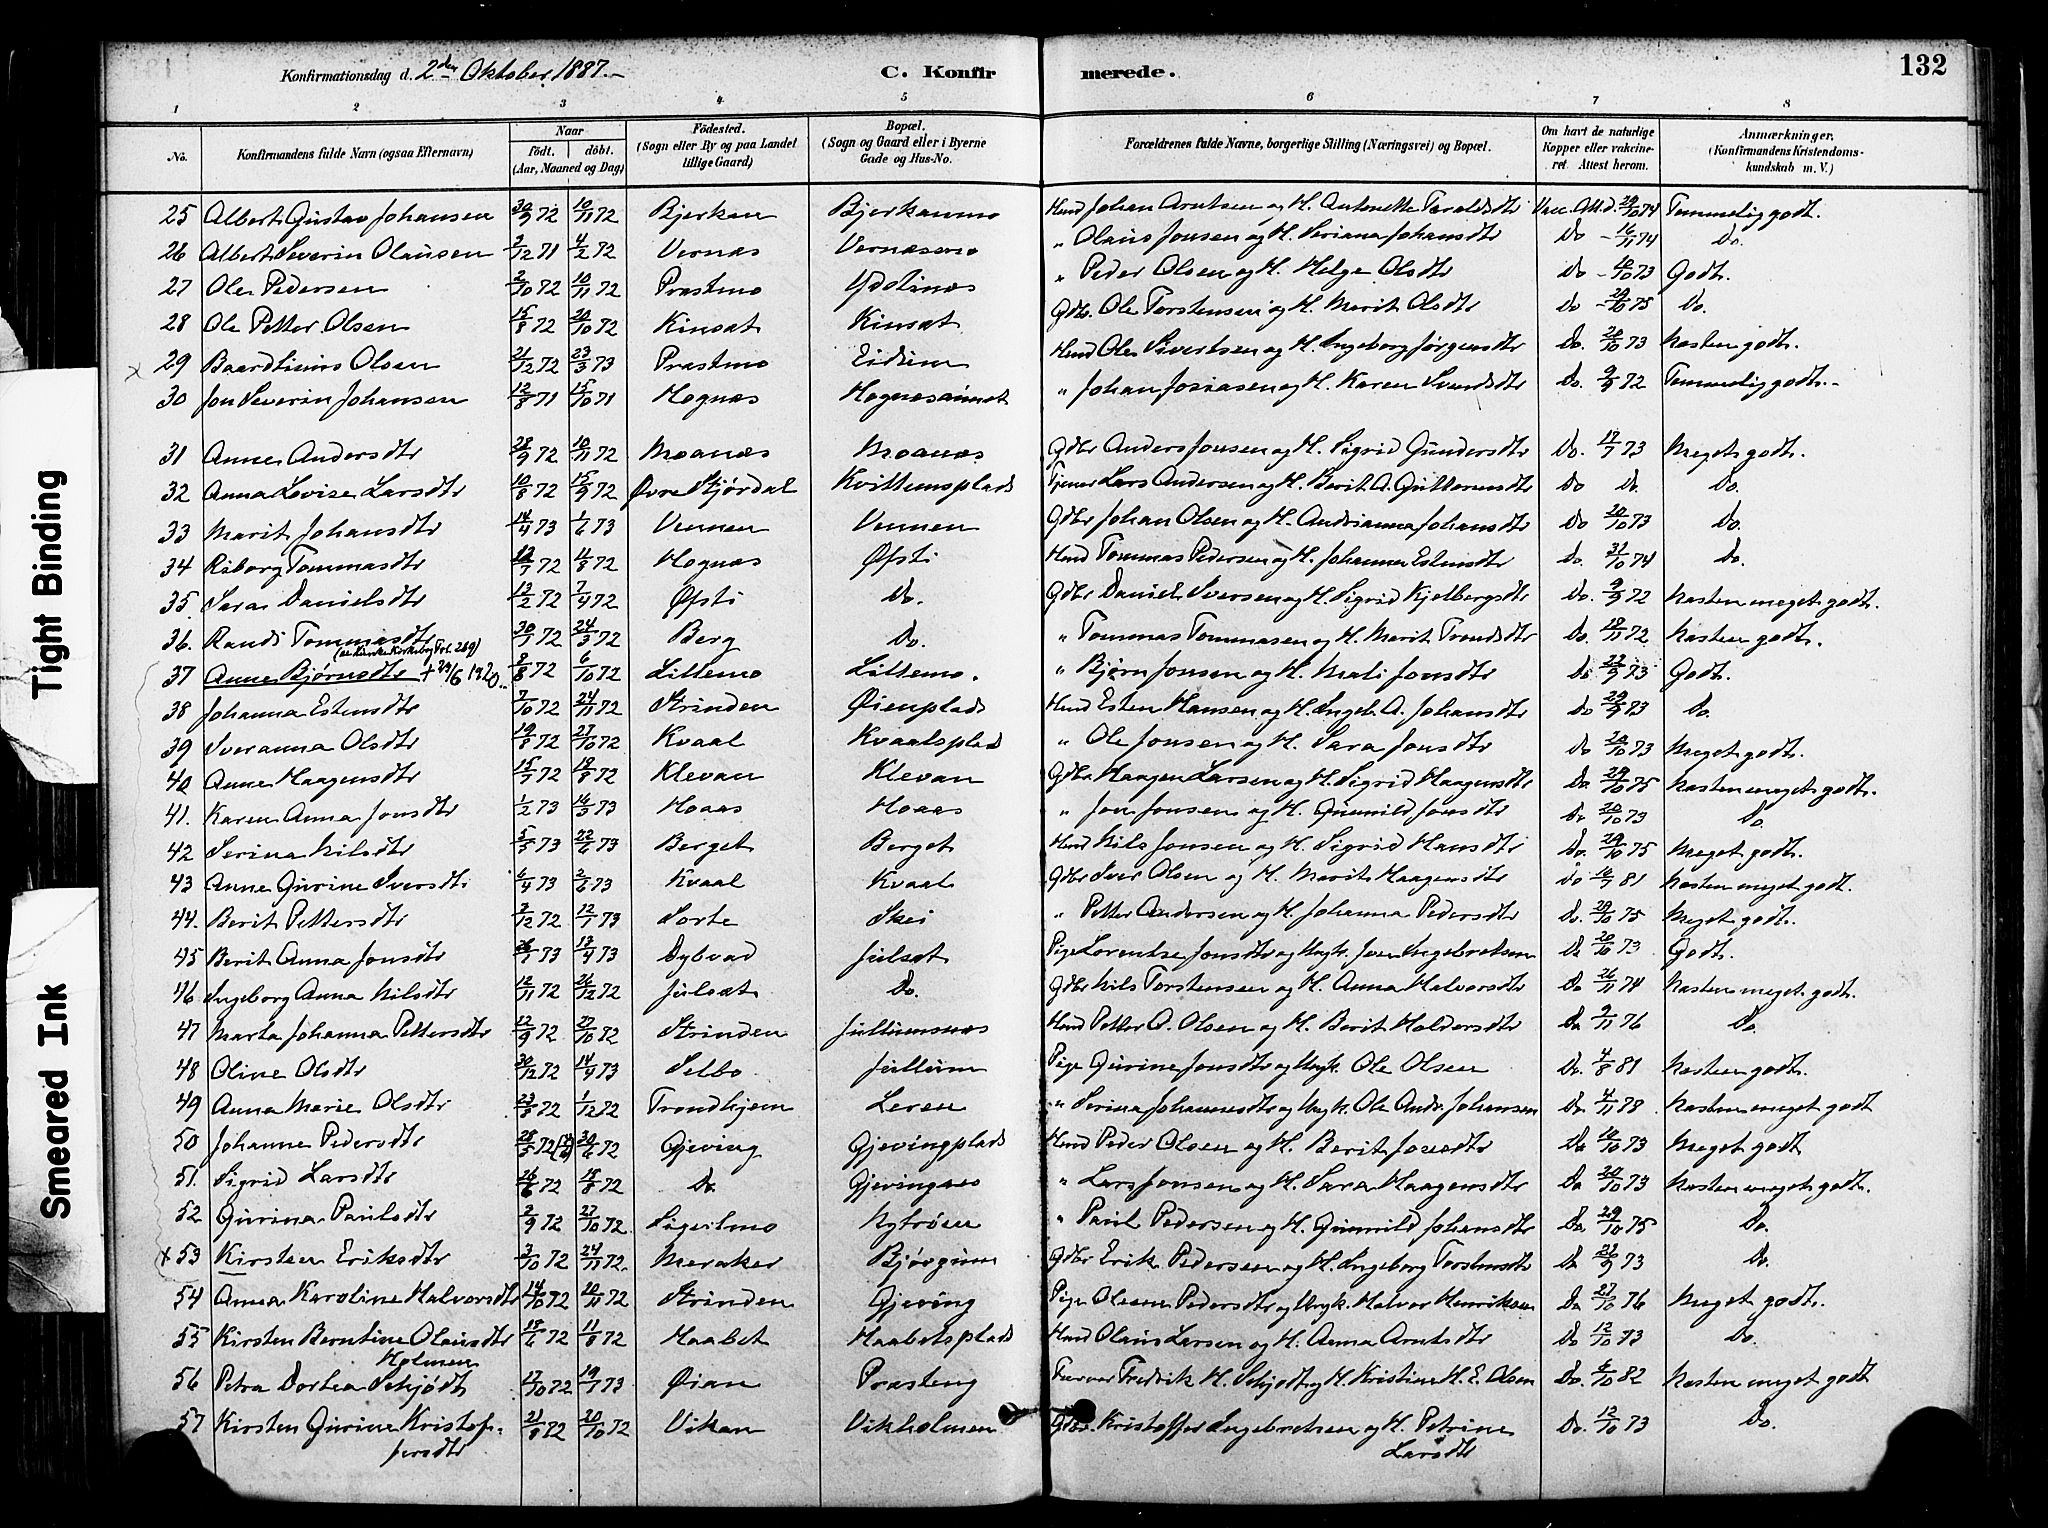 132
Konfirmationsdag d. 2den Oktober 1887.
C. Konfirmerede.
1 2 3 4 5 6 7 8
No. Konfirmandens fulde Navn (ogsaa Efternavn) Naar født. døbt. (Aar, Maaned og Dag) Fødested. (Sogn eller By og paa Landet tillige Gaard) Bopæl. (Sogn og Gaard eller i Byerne Gade og Hus-No. Forældrenes fulde Navne, borgerlige Stilling (Næringsvei) og Bopæl. Om havt de naturlige Kopper eller vakcineret. Attest herom. Anmærkninger. (Konfirmandens Kristendomskundskab m. V.)
25 Albert Gustav Johansen 30/9 72 10/11 72 Bjerkan Bjerkanmo Hmd Johan Arntsen og H. Antonette Taraldsdtr Vacc. Att. d. 29/10 74 Temmelig godt.
26 Albert Severin Olausen 2/12 71 4/2 72 Vernæs Vernæsmo " Olaus Jonsen og H. Seriana Johansdtr Do - 16/11 74 Do.
27 Ole Pedersen 2/10 72 10/11 72 Præstmo Ydstines " Peder Olsen og H. Helge Olsdtr Do - 10/10 73 Godt.
28 Ole Petter Olsen 15/8 72 20/10 72 Kinsæt Kinsæt Gdbr. Ole Torstensen og H. Marit Olsdtr Do - 29/10 75 Do.
29 Baard Olsen 21/12 72 23/3 73 Præstmo Eidum Hmd Ole Sivertsen og H. Ingeborg Jørgensdtr Do. 20/10 73 Næsten godt.
30 Jon Severin Johansen 12/8 71 15/10 71 Hognæs Hognæsaunet " Johan Josiasen og H. Karen Svendsdtr Do. 9/9 72 Temmelig godt.
31 Anne Andersdtr 28/9 72 10/11 72 Moanæs Moanæs Gdbr Anders Jonsen og H. Sigrid Gundersdtr Do. 17/7 73 Meget godt.
32 Anna Lovise Larsdtr 10/8 72 15/9 72 Øvre Stjørdal Kvittemsplads Tjener Lars Andersen og H. Berit A. Guttormsdtr Do Do. Do.
33 Marit Johansdtr 14/4 73 1/6 73 Vennen Vennen Gdbr Johan Olsen og H. Andrianna Johansdtr Do 20/10 73 Do.
34 Raborg Tommasdtr 12/7 72 4/8 72 Hognæs Øfsti Hmd Tommas Pedersen og H. Johanna Estensdtr Do. 31/10 74 Do.
35. Sara Danielsdtr 13/2 72 7/4 72 Øfsti Do. Gdbr Daniel Iversen og H. Sigrid Kjelbergsdtr Do. 9/9 72 Næsten meget godt.
36. Randi Tommasdtr 30/1 72 24/3 72 Berg Do. " Tommas Tommasen og H. Marit Trondsdtr Do. 18/11 72 Næsten godt.
37 Anne Bjørnsdtr + 24/6 1920. 2/8 72 6/10 72 Littemo Littemo. " Bjørn Jonsen og H. Mali Jonsdtr Do. 22/9 73 Godt.
38 Johanna Estensdtr 7/10 72 24/11 72 Strinden Øienplads Hmd Esten Hansen og H. Ingeb. A. Johansdtr Do 29/9 73 Do.
39 Iveranna Olsdtr 19/8 72 27/10 72 Kvaal Kvaalsplad " Ole Jonsen og H. Sara Jonsdtr Do 20/10 73 Meget godt.
40 Anne Haagensdtr 15/7 72 18/8 72 Klevan Klevan Gdbr. Haagen Larsen og H. Sigrid Haagensdtr Do. 29/10 75 Næsten meget godt.
41. Karen Anna Jonsdtr 1/2 73 16/3 73 Hoaas Hoaas " Jon Jonsen og H. Gunnild Jonsdtr Do 20/10 73 Do.
42 Serina Nilsdtr 5/5 73 22/6 73 Berget Berget Hmd Nils Jonsen og H. Sigrid Hansdtr Do. 29/10 75 Meget godt.
43 Anne Gurine Iversdtr 6/4 73 2/6 73 Kvaal Kvaal Gdbr Iver Olsen og H. Marit Haagensdtr Do 16/7 81 Næsten meget godt.
44. Berit Pettersdtr 3/12 72 12/1 73 Sorte Skei " Petter Andersen og H. Johanna Pedersdtr Do. 29/10 75 Meget godt.
45 Berit Anna Jonsdtr 26/1 73 13/4 73 Dybvad Julsæt Pige Lorentse Jonsdtr og Ungk. Jon Ingebretsen Do 20/10 73 Godt.
46 Ingeborg Anna Nilsdtr 12/11 72 26/12 72 Julsæt Do. Gdbr Nils Torstensen og H. Anna Halvorsdtr Do 26/11 74 Næsten meget godt.
47 Marta Johanna Pettersdtr 12/9 72 27/10 72 Strinden Jullumsnæs Hmd Petter O. Olsen og H. Berit Haldorsdtr Do 9/11 76 Do.
48 Oline Olsdtr 30/12 72 14/4 73 Selbo Jullum Pige Gurine Jonsdtr og Ungk. Ole Olsen Do. 4/8 81 Næsten godt.
49 Anna Marie Olsdtr 23/8 72 1/12 72 Trondhjem Leren " Serina Johannesdtr og Ungk. Ole Andr. Johansen Do. 4/11 78 Næsten meget godt
50 Johanne Pedersdtr 28/5 72 30/6 72 Gjeving Gjevingplads Hmd Peder Olsen og H. Berit Jonsdtr Do 10/10 73 Meget godt
51. Sigrid Larsdtr 26/6 72 18/8 72 Do. Gjevingnæs " Lars Jonsen og H. Sara Haagensdtr Do 20/10 73 Næsten meget godt.
52 Gurina Paulsdtr 2/9 72 27/10 72. Sigerstmo Nytrøen " Paul Pedersen og H. Gunnild Johansdtr Do. 29/10 75 Do.
x 53 Kirsten Eriksdtr 3/10 72 24/11 72. Meraker Bjørgum Gdbr Erik Pedersen og H. Ingeborg Torstensdtr Do 22/9 73 Do.
54 Anna Karoline Halvorsdtr 14/10 72 10/11 72 Strinden Gjeving Pige Olsene Pedersdtr og Ungk. Halvor Henriksen Do 27/10 76 Meget godt.
55 Kirsten Berntine Olausdtr 18/6 72 11/8 72 Haabet Haabetsplads Hmd Olaus Larsen og H. Anna Arntsdtr Do 12/10 73 Do.
Holmen
56 Petra Dortea Schjødt 17/10 72 19/1 73 Øian Præsteng Farver Fredrik H. Schjødt og H. Kristine H. E. Olsen Do. 6/10 82 Næsten meget godt
57 Kirsten Gurine Kristof- 21/8 72 20/10 72 Vikan Vikholmen Gdbr. Kristoffer Ingebretsen og H. Petrine Do. 12/10 73 Do.
fersdtr Larsdtr
Tight Binding
Smeared Ink